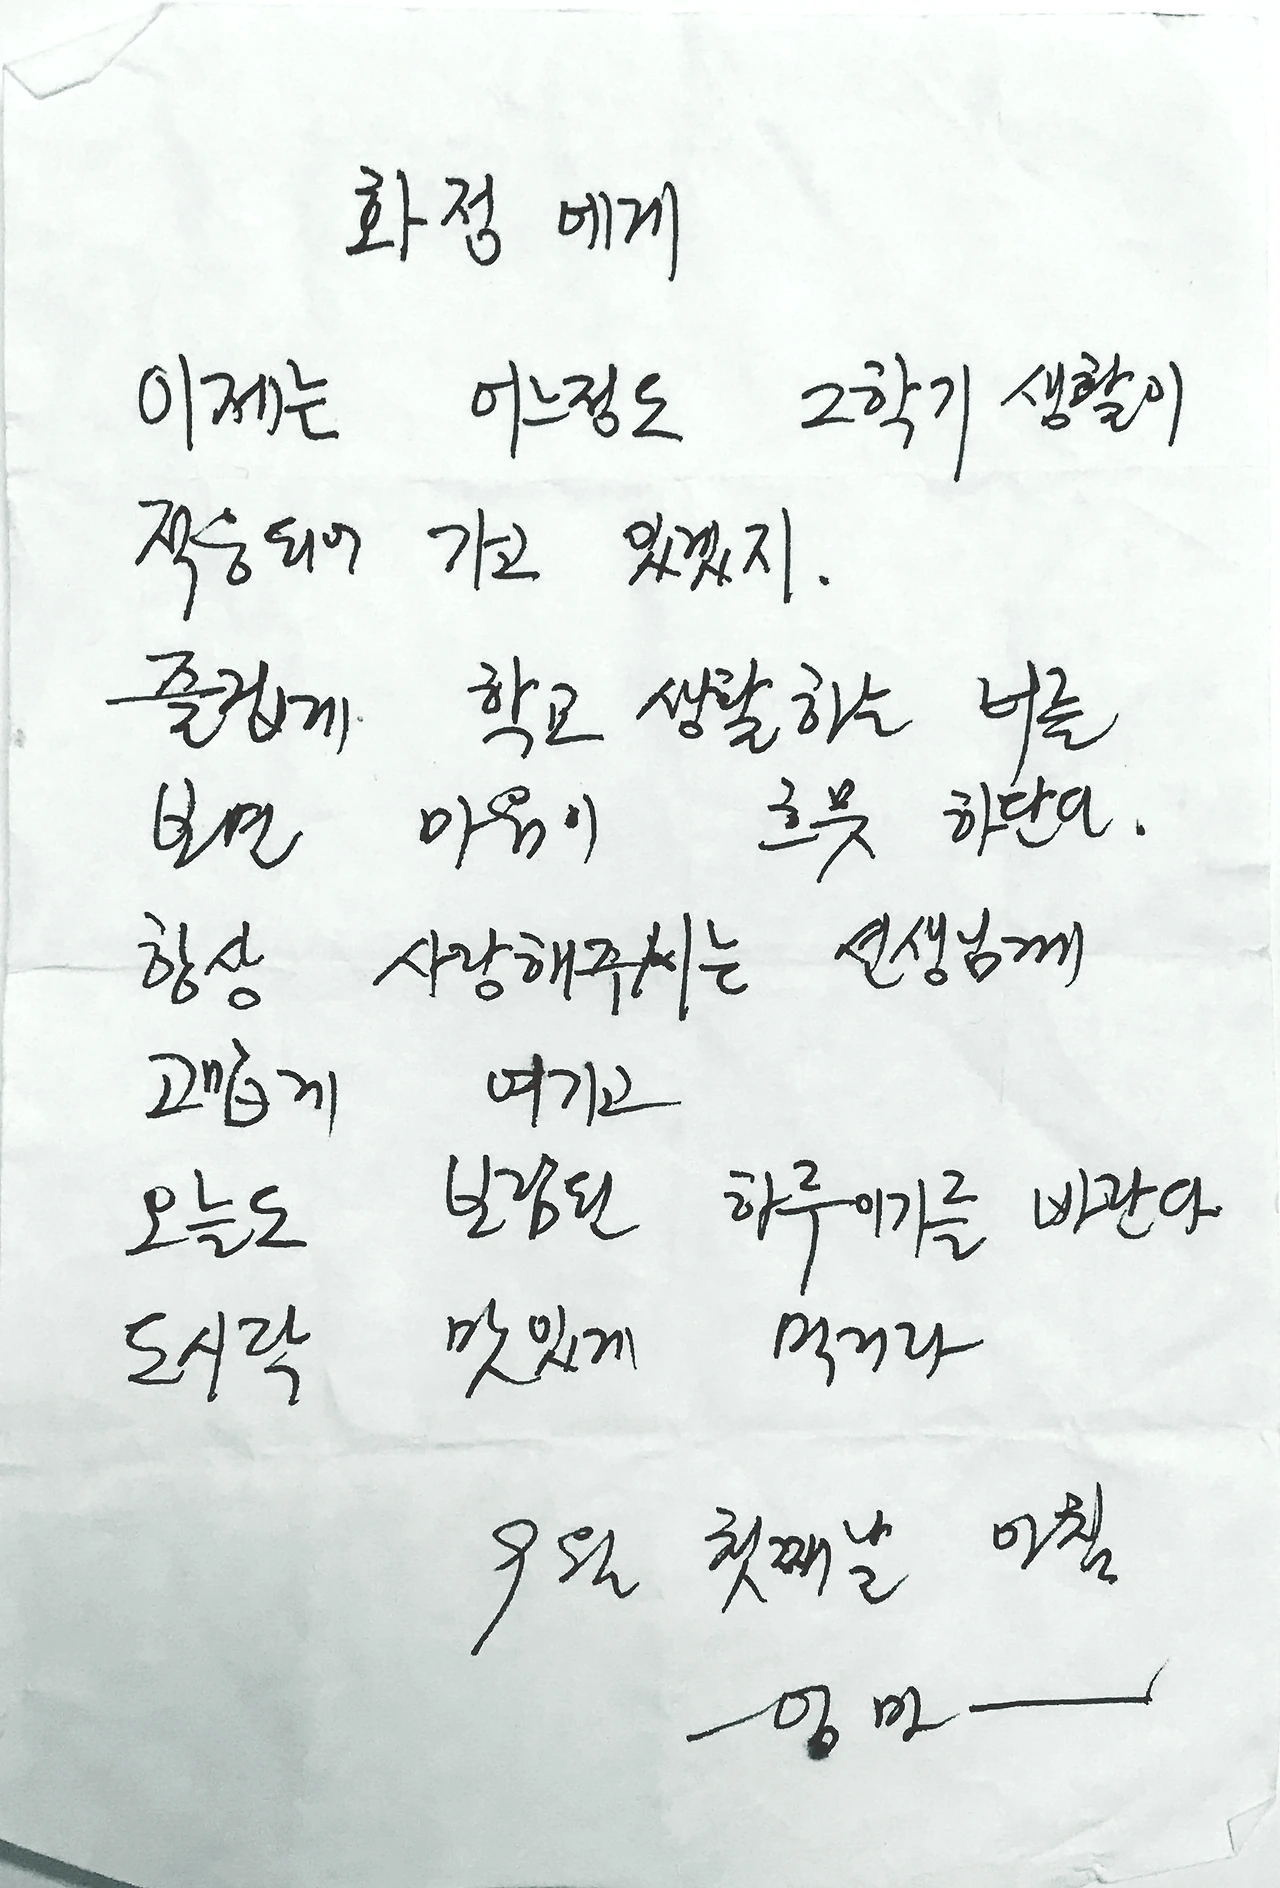 화정에게
이제는 어느정도 2학기 생활이
적응되어 가고 있겠지.
즐겁게 학교 생활하는 너를
보면 마음이 흐뭇 하단다.
항상 사랑해주시는 선생님께
고맙게 여기고
오늘도 보람된 하루이기를 바란다
도시락 맛있게 먹거라
9월 첫째날 아침
엄마